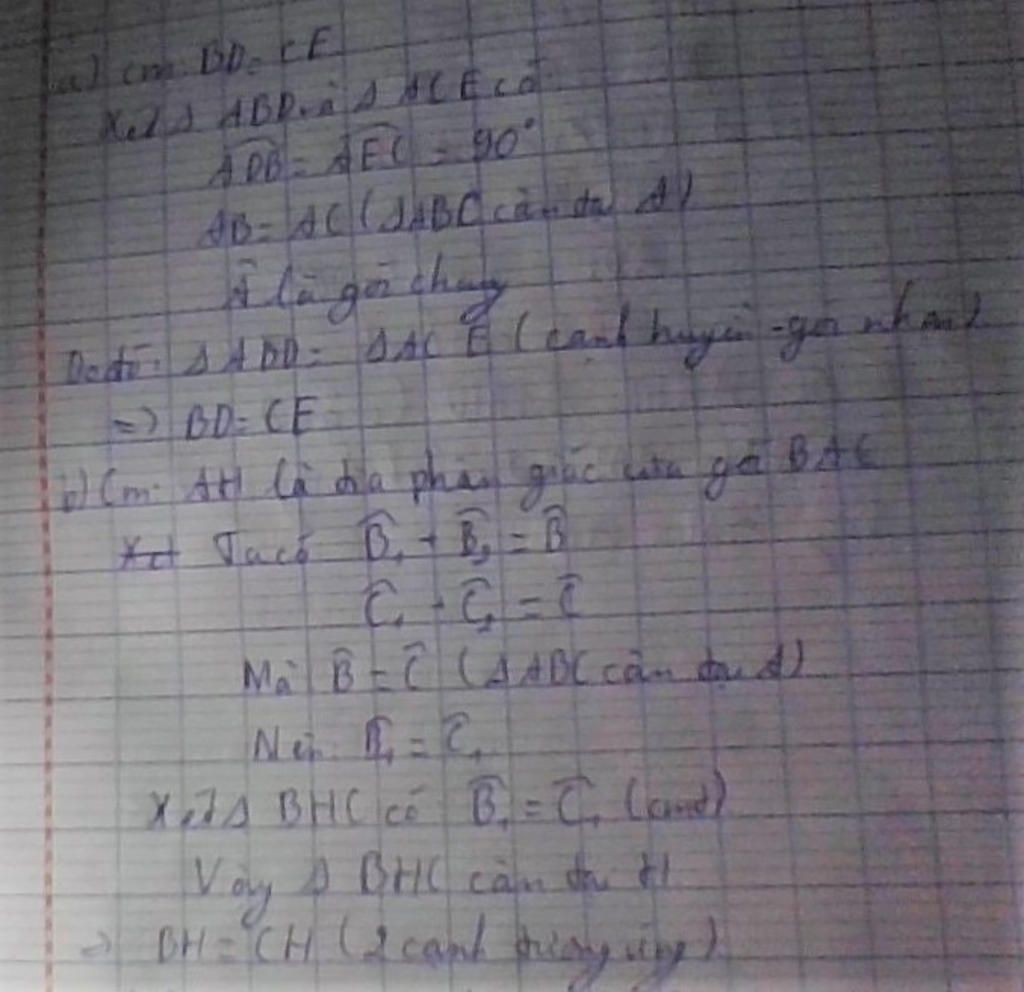 a) Cm: BD = CE
Xét Δ ABD và Δ ACE có:
ADB = AEC = 90°
AB = AC (ΔABC cân tại A)
Â là góc chung
Do đó: Δ ABD = ΔACE (cạnh huyền - góc nhọn)
=> BD = CE
b) Cm: AH là tia phân giác của góc BAC
Ta có B̂₁ + B̂₂ = B̂
Ĉ₁ + Ĉ₂ = Ĉ
Mà B̂ = Ĉ (ΔABC cân tại A)
Nên B̂₁ = Ĉ₁
Xét Δ BHC có B̂₁ = Ĉ₁ (cmt)
Vậy Δ BHC cân tại H
=> BH = CH (2 cạnh tương ứng)